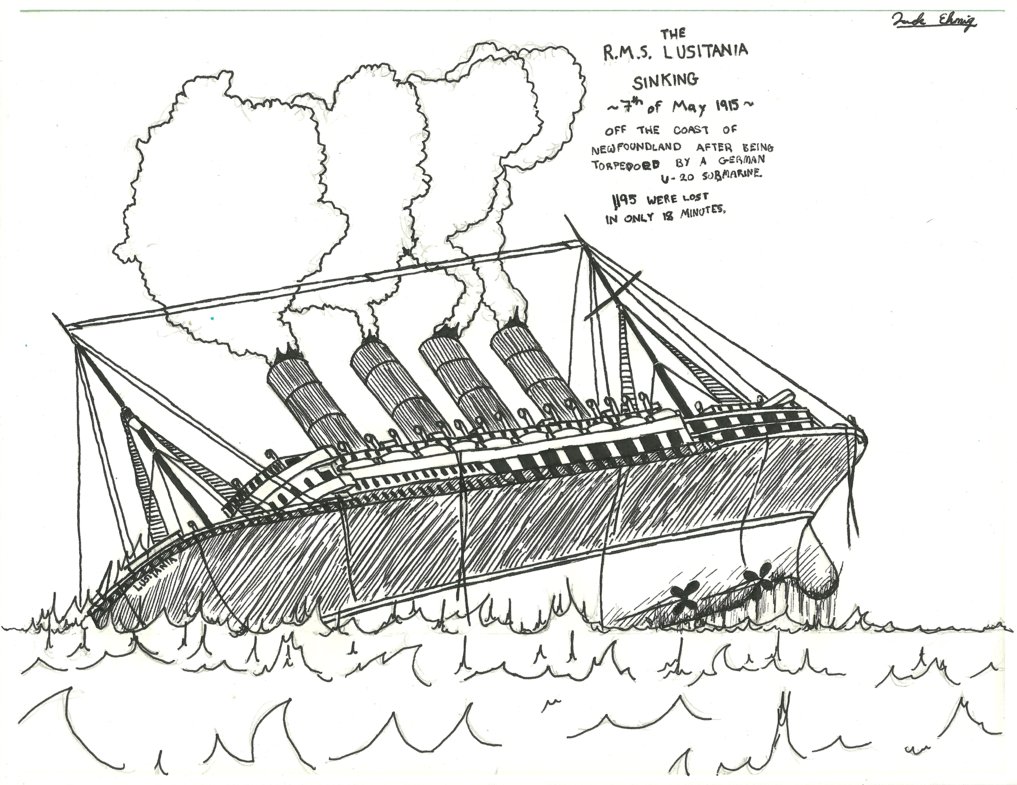 THE
R.M.S. LUSITANIA
SINKING
~7th of May 1915~
OFF THE COAST OF
NEWFOUNDLAND AFTER BEING
TORPEDOED BY A GERMAN
U-20 SUBMARINE.
1195 WERE LOST
IN ONLY 18 MINUTES.
LUSITANIA